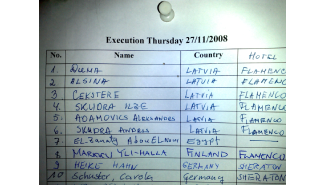 Execution Thursday 27/11/2008
No. Name Country HOTEL
1 DUMA LATVIA FLAMENCO
2 ELSINA LATVIA FLAMENCO
3 CEKSTERE LATVIA FLAMENCO
4. SKUDRA ILZE LATVIA FLAMENCO
5. ADAMOVICS ALEKSANDRS LATVIA FLAMENCO
6. SKUDRA ANDRIS LATVIA FLAMENCO
7- Egypt
8 MARKKU YLI-HALLA FINLAND FLAMENCO
9 HEIKE HAHN GERMANY SHERATON
10 Schuster, Carola Germany SHERATON